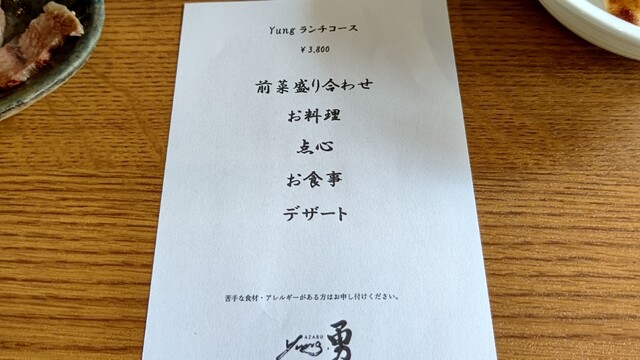 Yung ランチコース
¥3,800
前菜盛り合わせ
お料理
点心
お食事
デザート
苦手な食材・アレルギーがある方はお申し付けください。
AZABU
Yung 勇